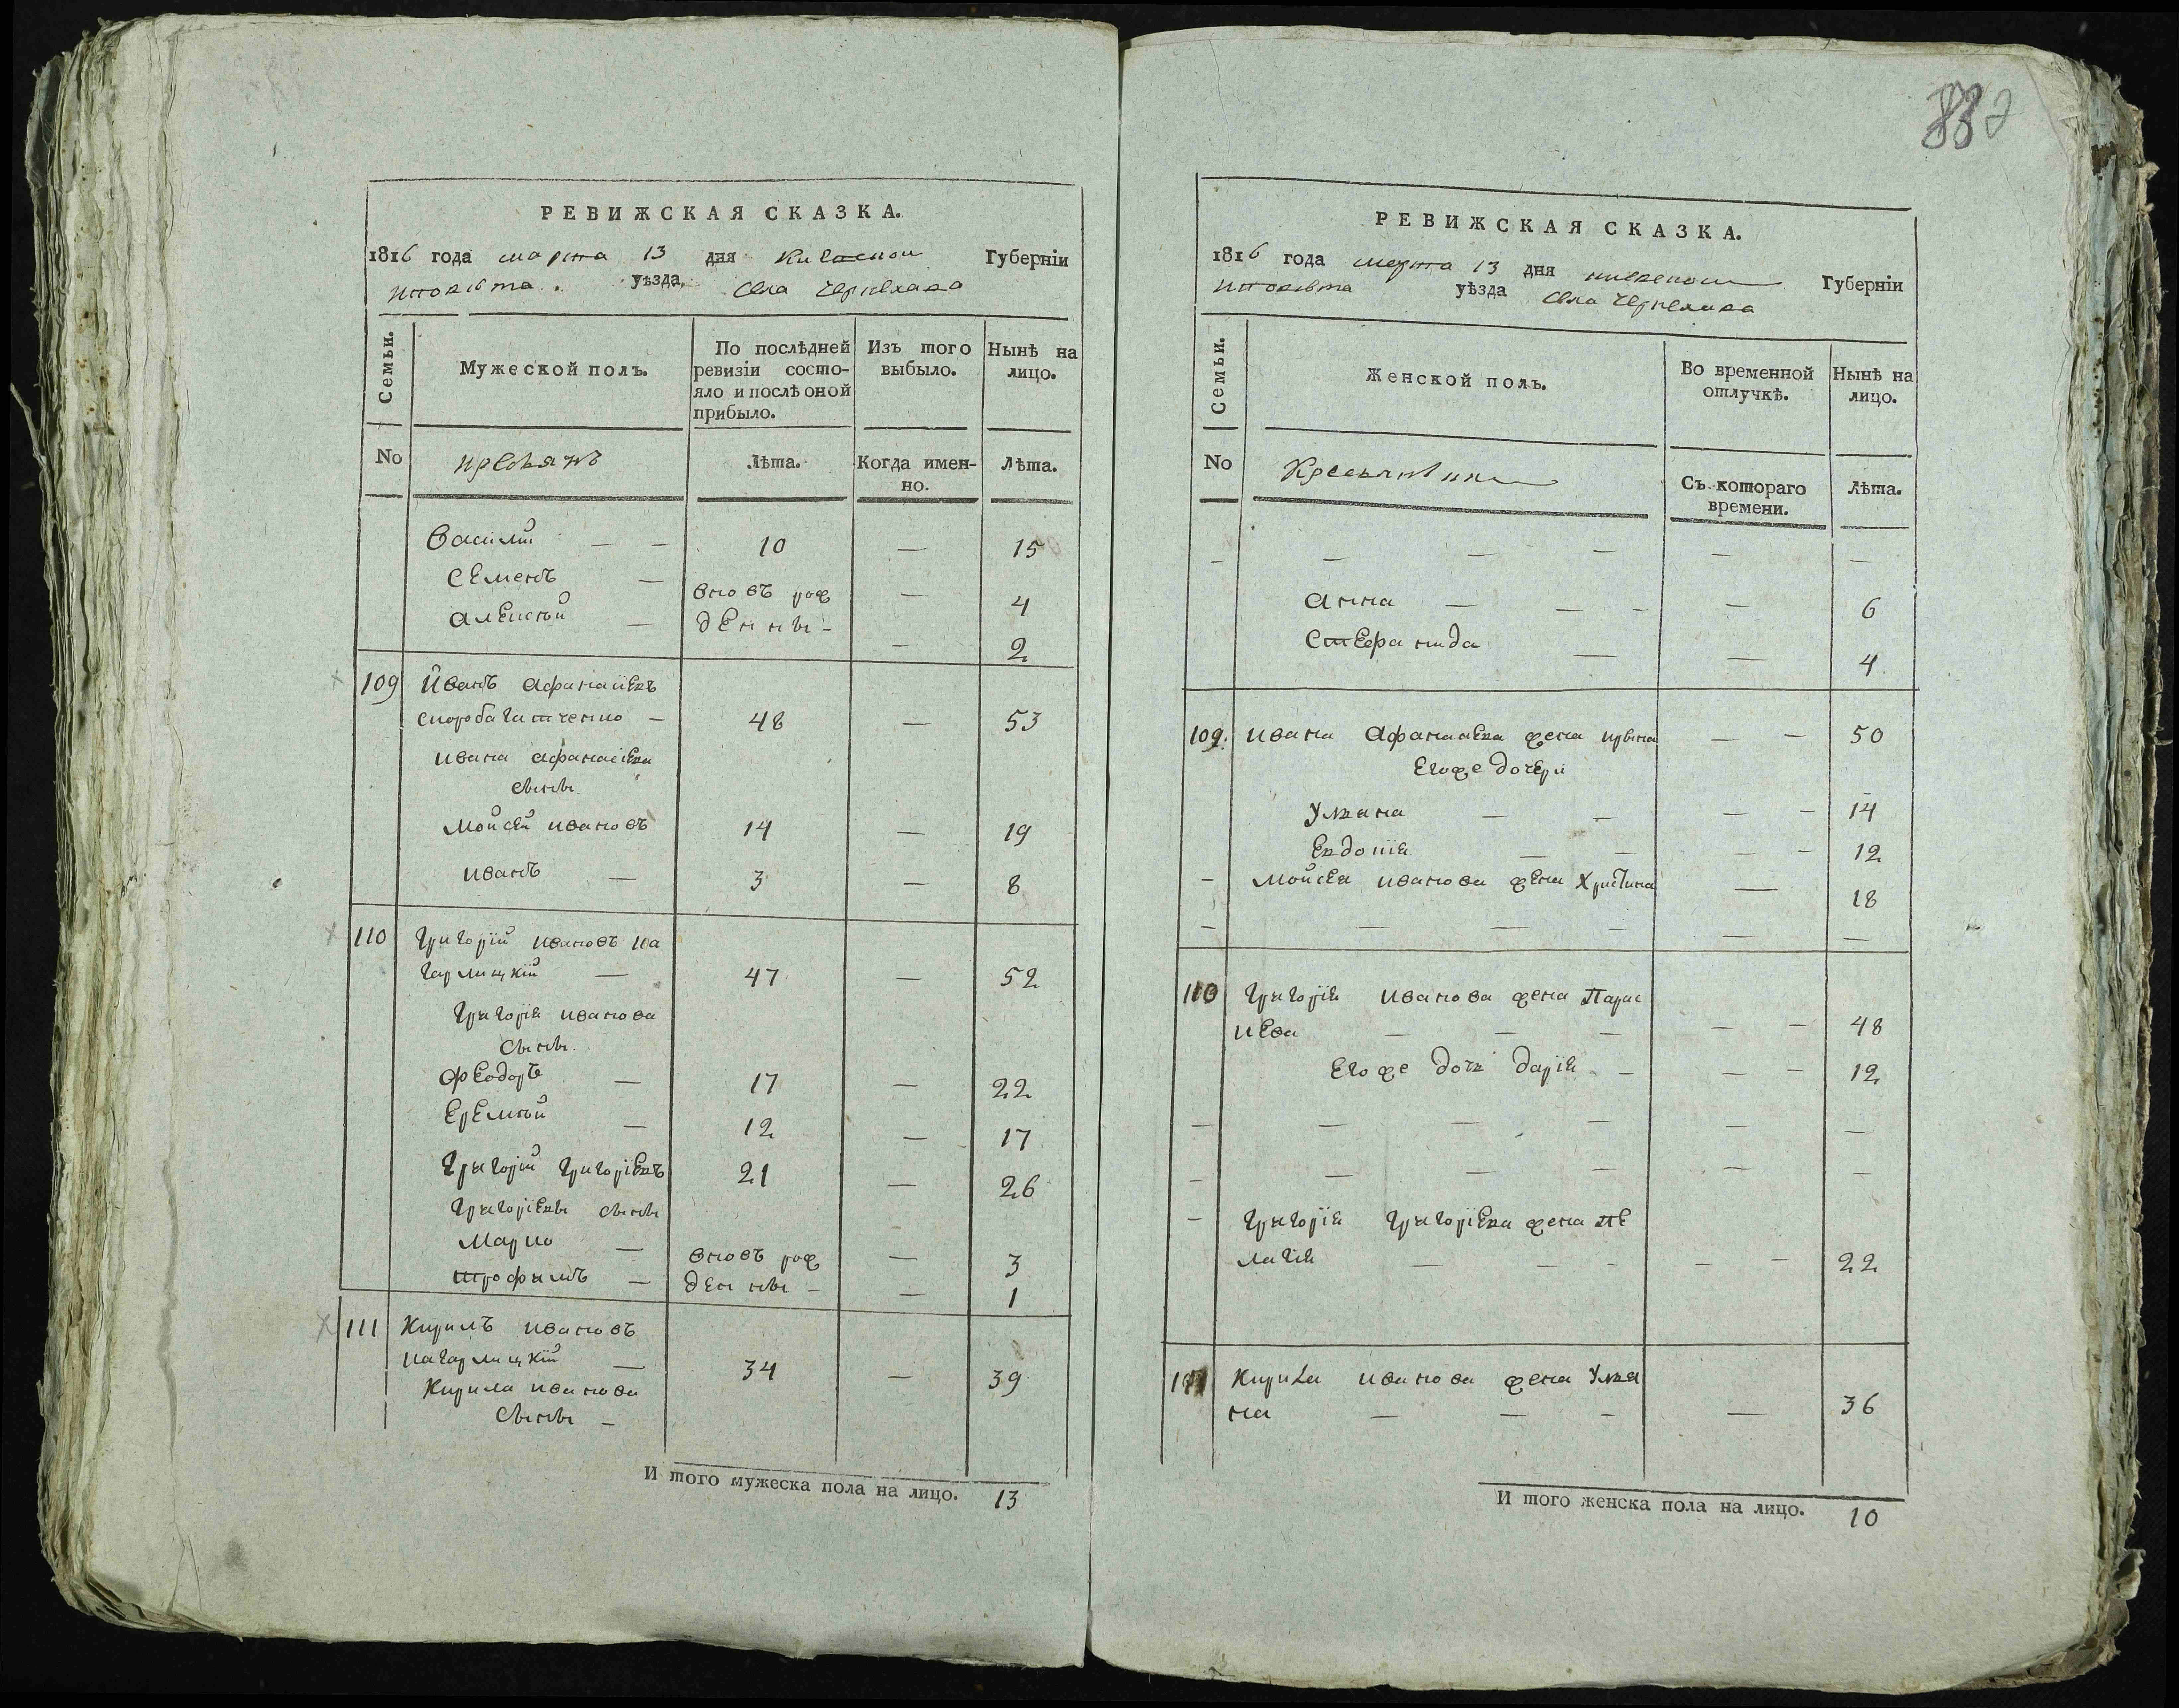 РЕВИЖСКАЯ СКАЗКА.
1816 года марта 13 дня Киевской Губерніи
уѣзда села Черняхова
Семьи.
Мужеской полъ.
По послѣдней ревизіи состояло и послѣ оной прибыло.
Изъ того выбыло.
Нынѣ на лицо.
No
Лѣта.
Когда именно.
Лѣта.
Василій — — 10 — 15
Семенъ — вновъ рож — 4
Алексѣй — денны - — 2
109 Иванъ Афанасіевъ
— 48 — 53
Ивана Афанасіева
сыны
Мойсей Ивановъ 14 — 19
Иванъ — 3 — 8
110 Григорій Ивановъ Ка
гарлицкій — 47 — 52
Григорія Иванова
сыны.
Феодоръ — 17 — 22
Еремѣй — 12 — 17
Григорій Григоріевъ 21 — 26
Григоріевы сыны
Марко — вновъ рож — 3
Трофимъ — денны - — 1
111 Кирилъ Ивановъ
Кагарлицкій — 34 — 39
Кирила Иванова
сыны —
И того мужеска пола на лицо. 13
832
РЕВИЖСКАЯ СКАЗКА.
1816 года марта 13 дня Киевской Губерніи
уѣзда села Черняхова
Семьи.
Женской полъ.
Во временной отлучкѣ.
Нынѣ на лицо.
No
Съ котораго времени.
Лѣта.
— — — — — —
Анна — — - — 6
Степанида — — 4
109. Ивана Афанасіева жена — — 50
Егоже дочери
Уляна — — — - 14
Евдокія — — — - 12
- Мойсея Иванова жена Христина — 18
- — — - — —
110 Григорія Иванова жена Парас
кева — — — — — 48
Егоже дочь Дарія - — — 12
— — — — — —
- — — — — —
- Григорія Григоріева жена Пе
лагія — — - - — 22
111 Кирила Иванова жена Уля
на — — - — 36
И того женска пола на лицо. 10